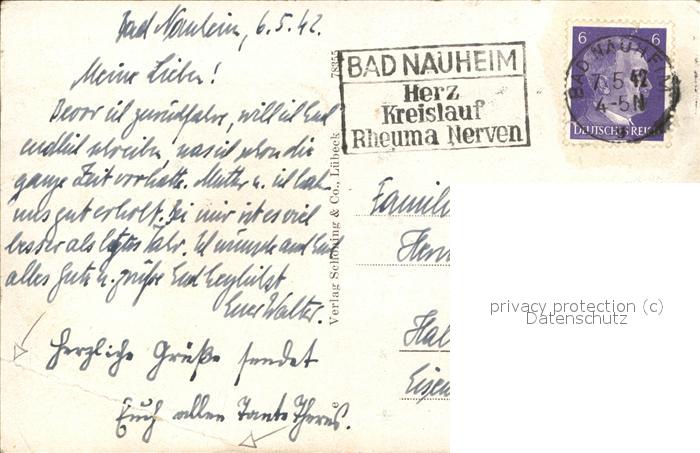 Bad Nauheim, 6.5.42.
Meine Lieben!
Bevor ich zurückfahre, will ich Euch
endlich schreiben, was ich schon die
ganze Zeit vorhatte. Mutter u. ich haben
uns gut erholt. Bei mir ist es viel
besser als letztes Jahr. Ich wünsche auch Euch
alles Gute u. grüße Euch herzlichst
Euer Walter.
Herzliche Grüße sendet
Euch allen Tante Theres.
78355
Verlag Schöning & Co., Lübeck
BAD NAUHEIM
Herz
Kreislauf
Rheuma Nerven
6 6
BAD NAUHEIM
7.5.42
4-5N
DEUTSCHES REICH
Famili
Herm
Hal
Eisen
privacy protection (c)
Datenschutz